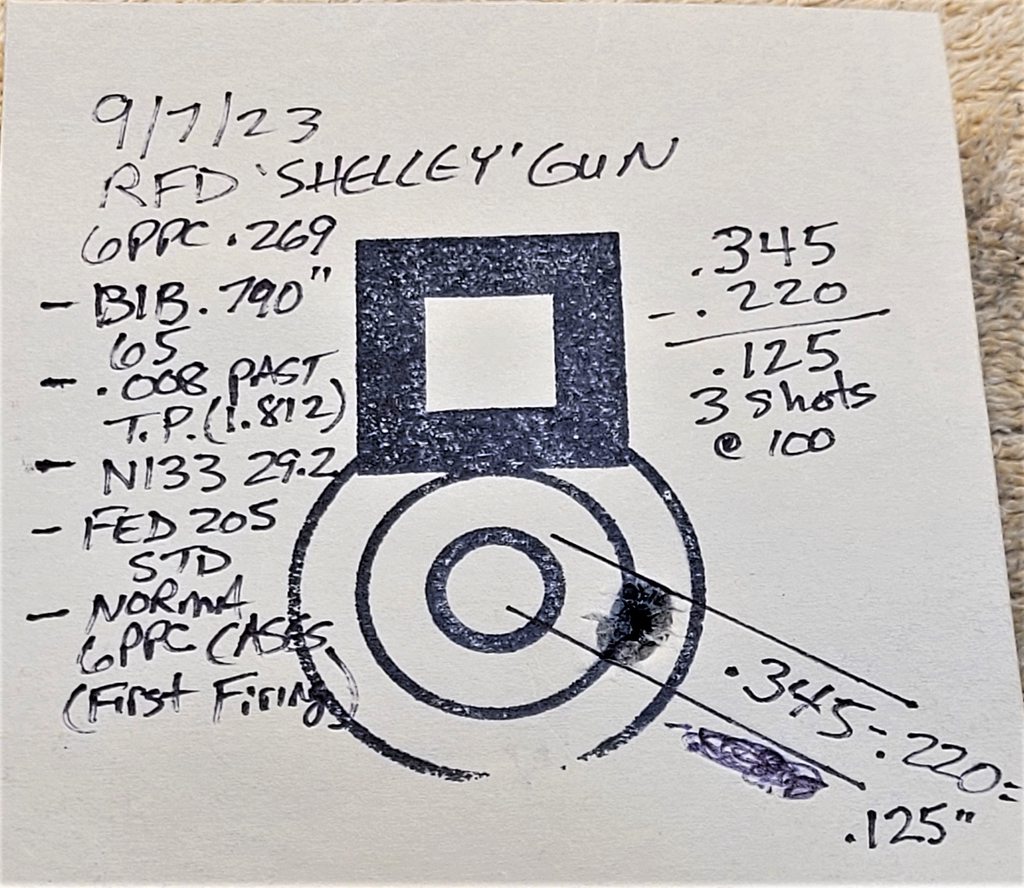 9/7/23
RFD 'SHELLEY' GUN
6PPC .269
- BIB .790"
65
- .008 PAST
T.P. (1.812)
- N133 29.2
- FED 205
STD
- NORMA
6PPC CASES
(First Firing)
.345
- .220
.125
3 shots
@ 100
.345 - .220 =
.125"